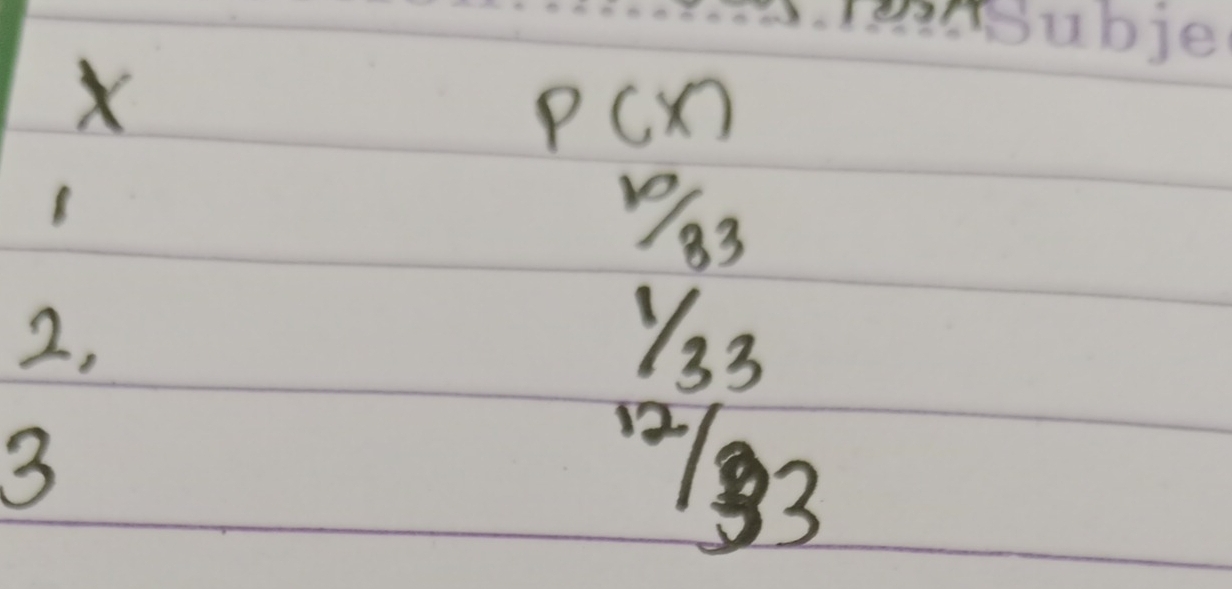 Subje
X P(X)
1 10/33
2, 1/33
3 12/33